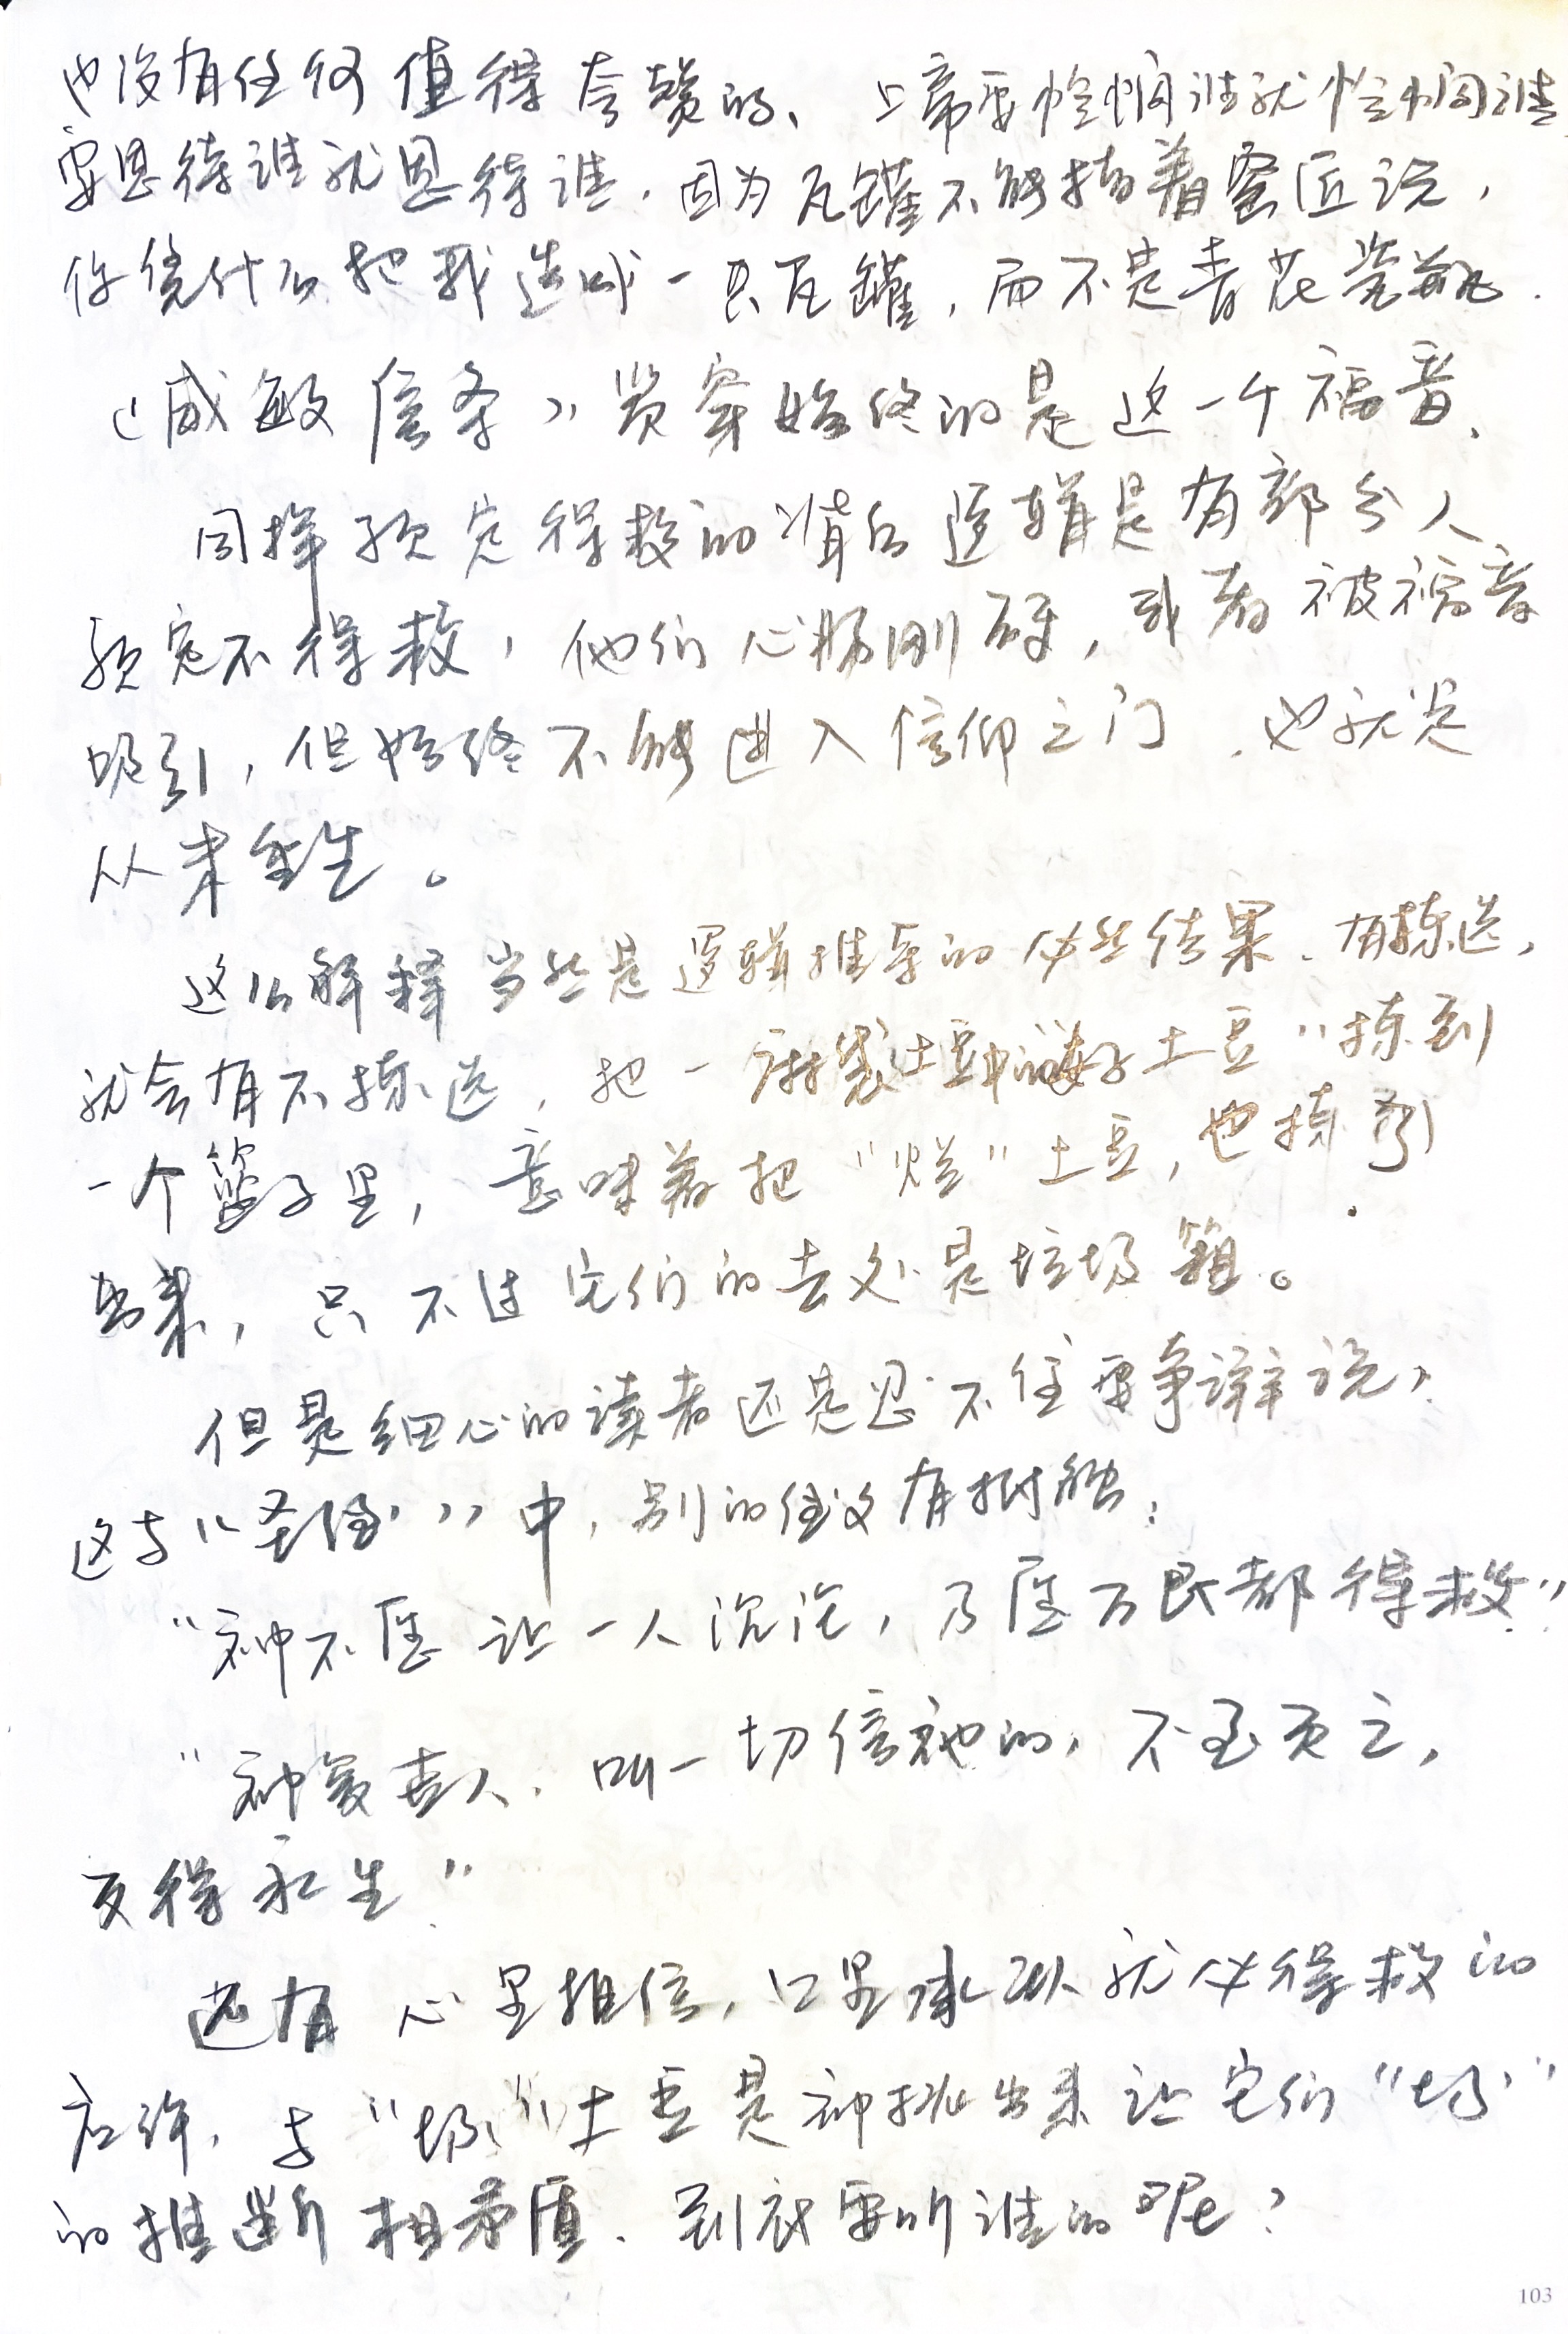 也没有任何值得夸赞的、上帝要怜悯谁就怜悯谁
要恩待谁就恩待谁，因为瓦罐不能指着窑匠说，
你凭什么把我造成一只瓦罐，而不是青花瓷瓶．
《威敏信条》贯穿始终的是这一个福音、
同样预定得救的背后逻辑是有部分人
预定不得救，他们心肠刚硬，或者被福音
吸引，但始终不能进入信仰之门．也就是
从未重生。
这么解释当然是逻辑推导的必然结果、有拣选，
就会有不拣选，把一麻袋土豆中的好土豆"拣到
一个篮子里，意味着把"烂"土豆，也拣到
出来，只不过它们的去处是垃圾箱。
但是细心的读者还是忍不住要争辩说，
这与"圣经"中，别的经文有抵触：
"神不愿让一人沉沦，乃愿万民都得救"
"神爱世人．叫一切信祂的，不至灭亡，
反得永生"
还有心里相信，口里承认就必得救的
应许，与"坏"土豆是神挑出来让它们"坏"
的推断相矛盾．到底要听谁的呢？
103